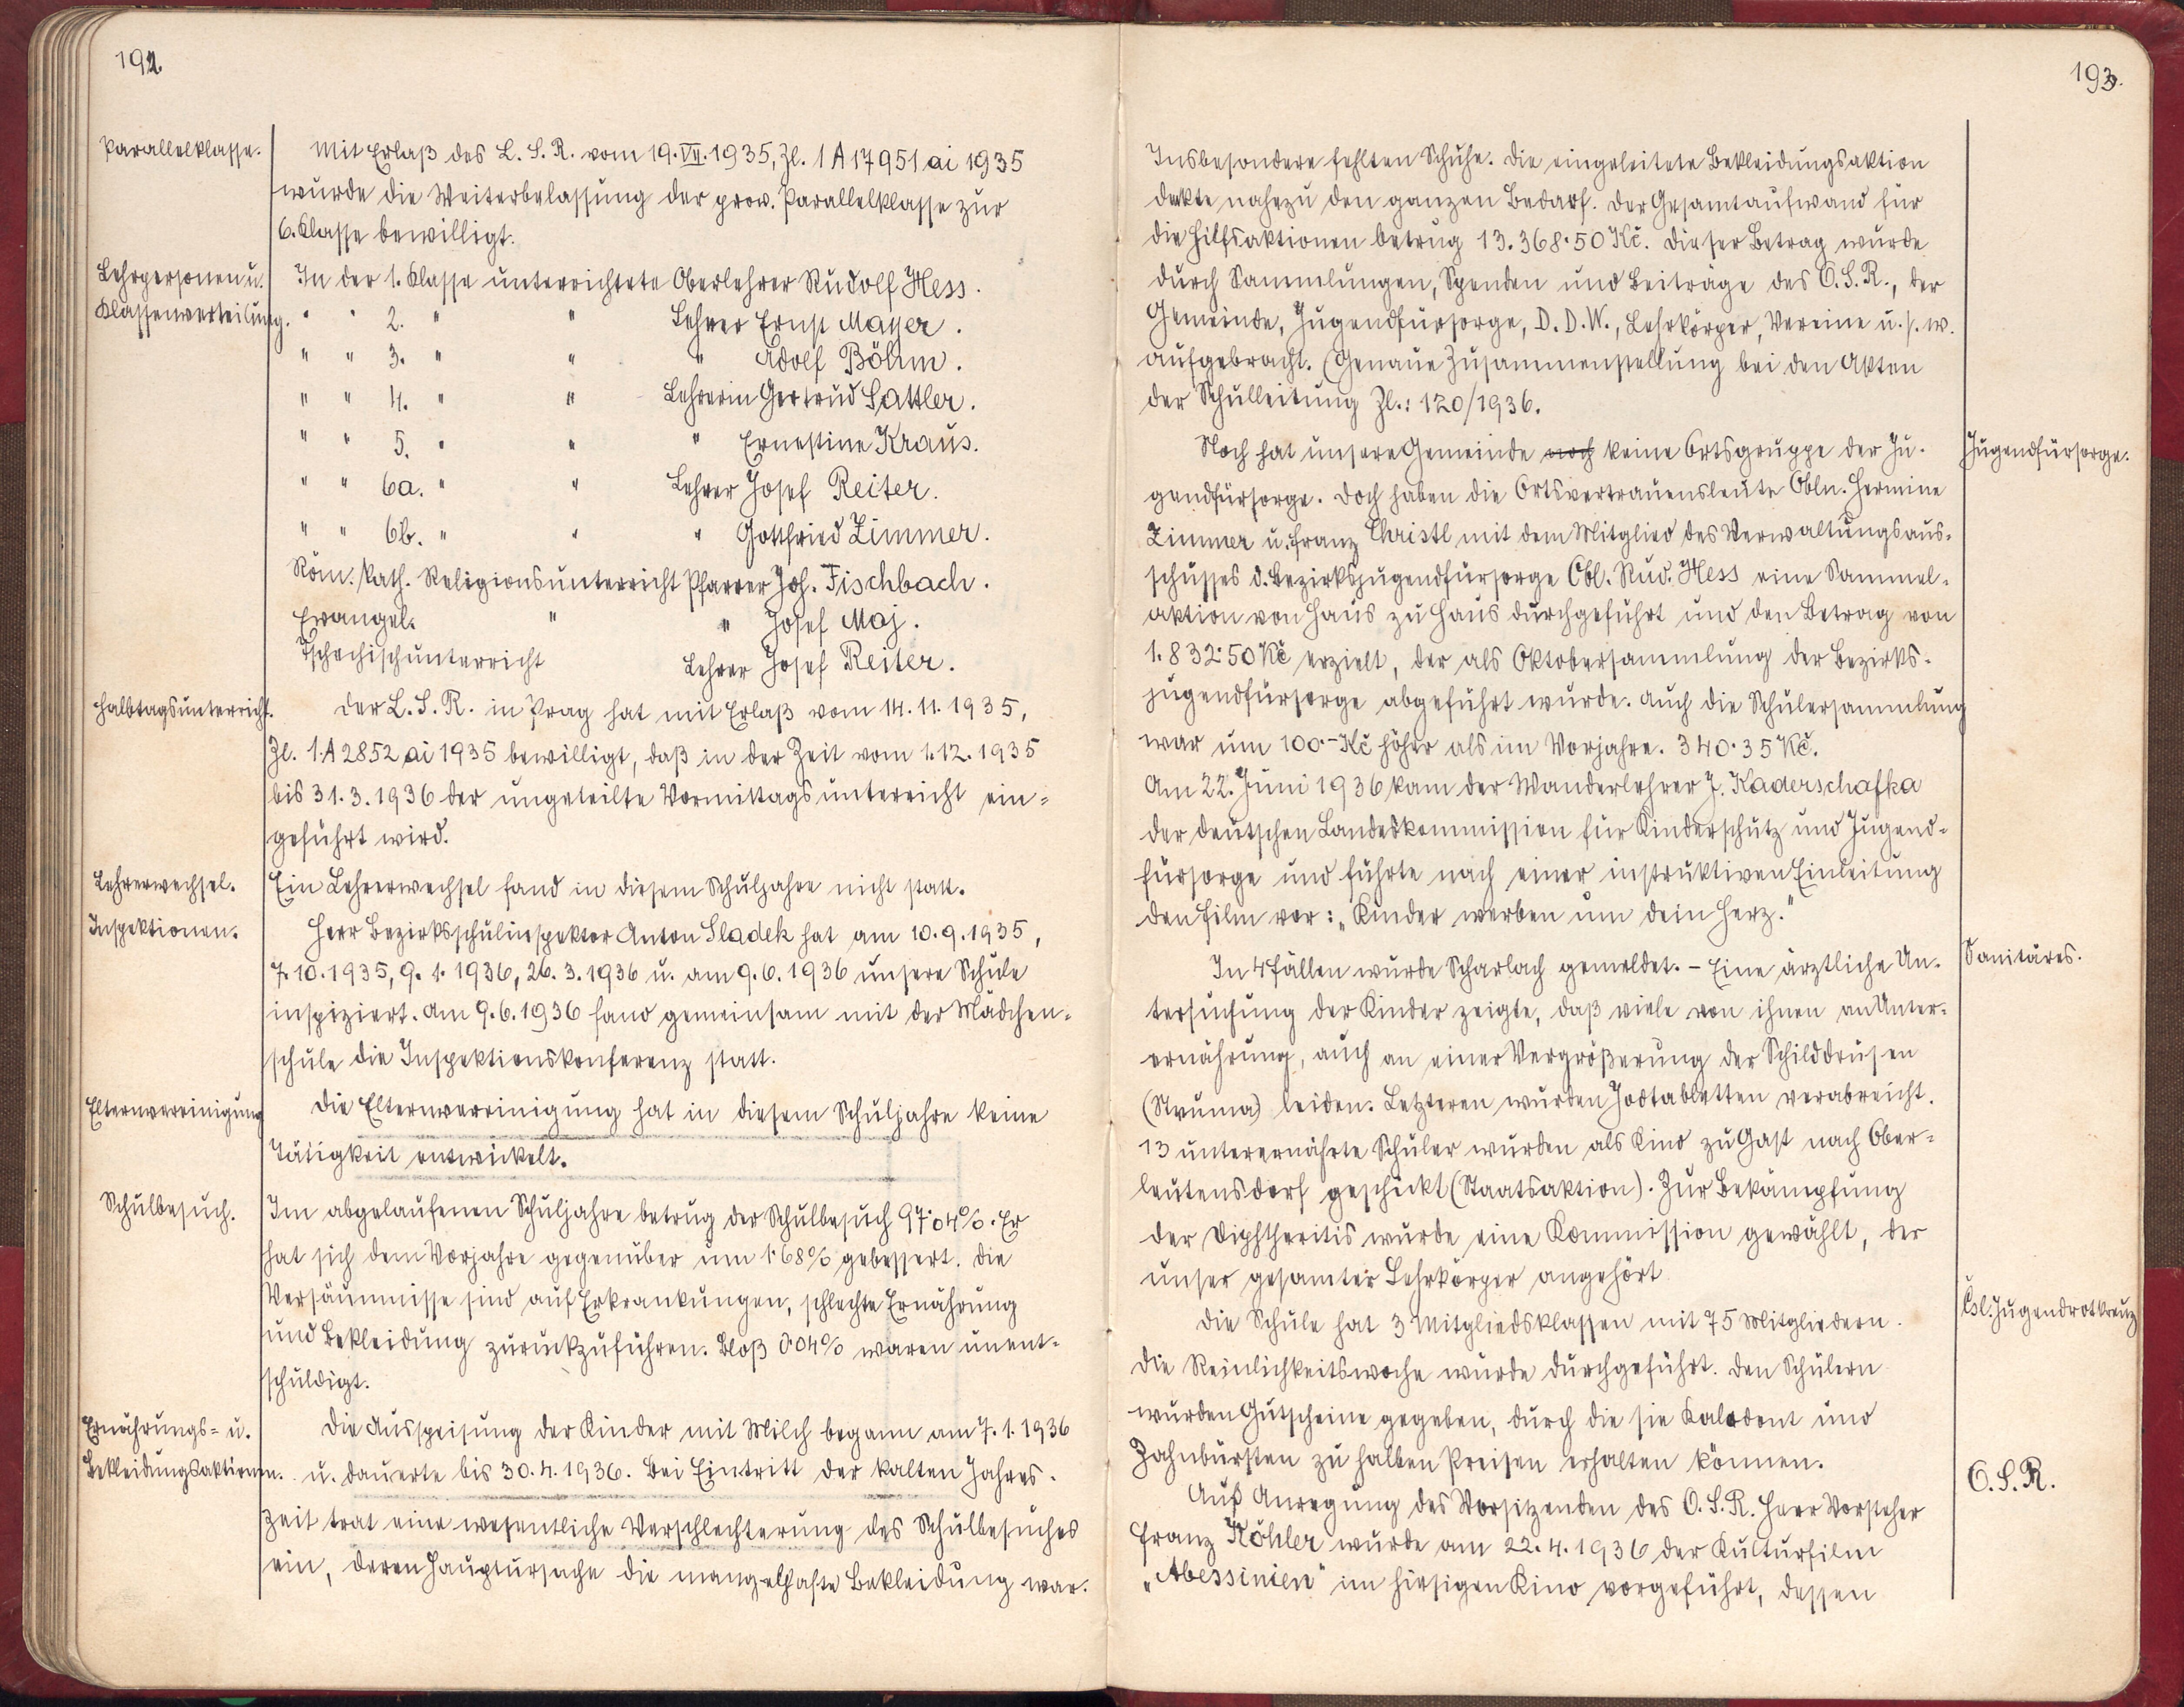 192.
Parallelklasse.
Mit Erlaß des L. S. R. vom 19. VII. 1935, Zl. 1 A 17951 ai 1935
wurde die Weiterbelassung der prov. Parallelklasse zur
6. Klasse bewilligt.
Lehrpersonen u.
Klassenverteilung.
In der 1. Klasse unterrichtete Oberlehrer Rudolf Hess.
" " 2. " " Lehrer Ernst Mayer.
" " 3. " " " Adolf Böhm.
" " 4. " " Lehrerin Gertrud Sattler.
" " 5. " " " Ernestine Kraus.
" " 6a. " " Lehrer Josef Reiter.
" " 6b. " " " Gottfried Zimmer.
Röm. kath. Religionsunterricht Pfarrer Joh. Fischbach.
Evangel. " " Josef Maj.
Tschechischunterricht Lehrer Josef Reiter.
Halbtagsunterricht.
Der L. S. R. in Prag hat mit Erlaß vom 14. 11. 1935,
Zl. 1. A 2852 ai 1935 bewilligt, daß in der Zeit vom 1. 12. 1935
bis 31. 3. 1936 der ungeteilte Vormittagsunterricht ein=
geführt wird.
Lehrerwechsel.
Ein Lehrerwechsel fand in diesem Schuljahre nicht statt.
Inspektionen.
Herr Bezirksschulinspektor Anton Sladek hat am 10. 9. 1935,
7. 10. 1935, 9. 1. 1936, 26. 3. 1936 u. am 9. 6. 1936 unsere Schule
inspiziert. Am 9. 6. 1936 fand gemeinsam mit der Mädchen=
schule die Inspektionskonferenz statt.
Elternvereinigung
Die Elternvereinigung hat in diesem Schuljahre keine
Tätigkeit entwickelt.
Schulbesuch.
Im abgelaufenen Schuljahre betrug der Schulbesuch 97·04%. Er
hat sich dem Vorjahre gegenüber um 1·68% gebessert. Die
Versäumnisse sind auf Erkrankungen, schlechte Ernährung
und Bekleidung zurückzuführen. Bloß 0·04% waren unent=
schuldigt.
Ernährungs= u.
Bekleidungsaktionen.
Die Ausspeisung der Kinder mit Milch begann am 7. 1. 1936
u. dauerte bis 30. 4. 1936. Bei Eintritt der kalten Jahres=
zeit trat eine wesentliche Verschlechterung des Schulbesuches
ein, deren Hauptursache die mangelhafte Bekleidung war.
193.
Insbesondere fehlten Schuhe. Die eingeleitete Bekleidungsaktion
deckte nahezu den ganzen Bedarf. Der Gesamtaufwand für
die Hilfsaktionen betrug 13.368·50 Kč. Dieser Betrag wurde
durch Sammlungen, Spenden und Beiträge des O. S. R., der
Gemeinde, Jugendfürsorge, D. D. W., Lehrkörper, Vereine u. s. w.
aufgebracht. (Genaue Zusammenstellung bei den Akten
der Schulleitung Zl.: 120/1936.
Jugendfürsorge.
Noch hat unsere Gemeinde noch keine Ortsgruppe der Ju=
gendfürsorge. Doch haben die Ortsvertrauensleute Obln. Hermine
Zimmer u. Franz Christl mit dem Mitglied des Verwaltungsaus=
schusses d. Bezirksjugendfürsorge Obl. Rud. Hess eine Sammel=
aktion von Haus zu Haus durchgeführt und den Betrag von
1.832·50 Kč erzielt, der als Oktobersammlung der Bezirks=
jugendfürsorge abgeführt wurde. Auch die Schülersammlung
war um 100·- Kč höher als im Vorjahre. 340·35 Kč.
Am 22. Juni 1936 kam der Wanderlehrer J. Kaderschafka
der deutschen Landeskommission für Kinderschutz und Jugend=
fürsorge und führte nach einer instruktiven Einleitung
den Film vor: „Kinder werben um dein Herz."
Sanitäres.
In 4 Fällen wurde Scharlach gemeldet. - Eine ärztliche Un=
tersuchung der Kinder zeigte, daß viele von ihnen an Unter=
ernährung, auch an einer Vergrößerung der Schilddrüsen
(Struma) leiden. Letzteren wurden Jodtabletten verabreicht.
13 unterernährte Schüler wurden als Kind zu Gast nach Ober=
leutensdorf geschickt (Staatsaktion). Zur Bekämpfung
der Diphtheritis wurde eine Kommission gewählt, der
unser gesamter Lehrkörper angehört.
Čsl. Jugendrotkreuz
Die Schule hat 3 Mitgliedsklassen mit 75 Mitgliedern.
Die Reinlichkeitswoche wurde durchgeführt. Den Schülern
wurden Gutscheine gegeben, durch die sie Kalodont und
Zahnbürsten zu halben Preisen erhalten können.
O. S. R.
Auf Anregung des Vorsitzenden des O. S. R. Herr Vorsteher
Franz Köhler wurde am 22. 4. 1936 der Kulturfilm
„Abessinien" im hiesigen Kino vorgeführt, dessen